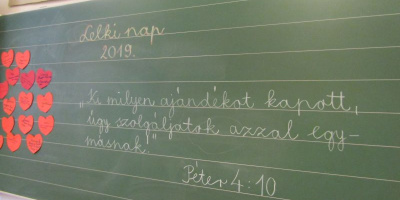 Lelki nap
2019.
„Ki milyen ajándékot kapott,
úgy szolgáljatok azzal egy-
másnak!"
Péter 4:10